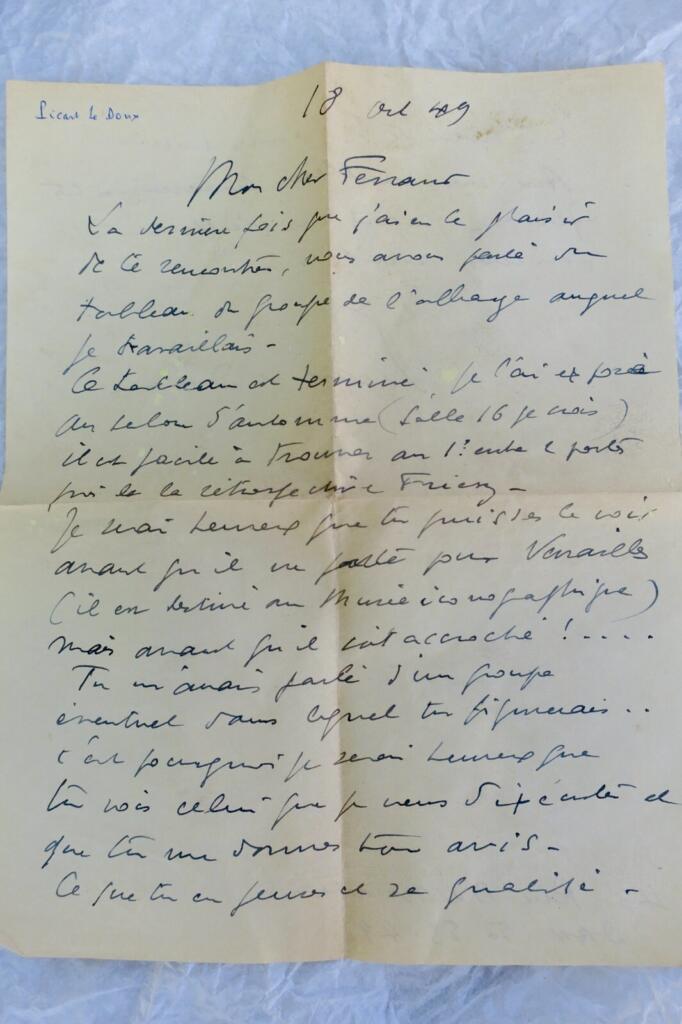 Picart le Doux
18 Oct 49
Mon cher Ferrand
La dernière fois que j'ai eu le plaisir
de te rencontrer, nous avons parlé du
tableau du groupe de l'abbaye auquel
je travaillais -
Ce tableau est terminé je l'ai exposé
au salon d'automne (Salle 16 je crois)
il est facile à trouver au 1er
près de la rétrospective Friesz -
Je serai heureux que tu puisses le voir
avant qu'il ne parte pour Versailles
(il est destiné au Musée iconographique)
mais avant qu'il soit accroché ! ....
Tu m'avais parlé d'un groupe
éventuel dans lequel tu figurerais ..
c'est pourquoi je serai heureux que
tu vois celui que je viens d'exécuter et
que tu me donnes ton avis -
Ce que tu en penses et sa qualité -